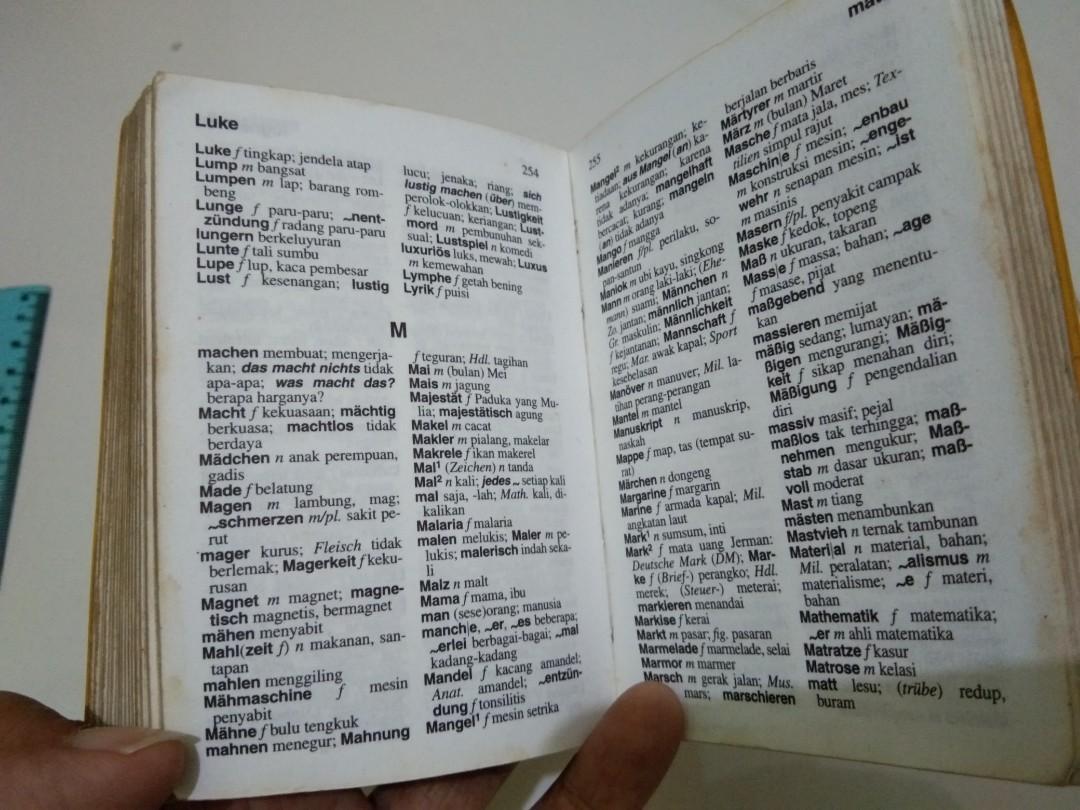 Luke
254
Luke f tingkap; jendela atap
Lump m bangsat
Lumpen m lap; barang rom-
beng
Lunge f paru-paru; ~nent-
zündung f radang paru-paru
lungern berkeluyuran
Lunte f tali sumbu
Lupe f lup, kaca pembesar
Lust f kesenangan; lustig
lucu; jenaka; riang; sich
lustig machen (über) mem-
perolok-olokkan; Lustigkeit
f kelucuan; keriangan; Lust-
mord m pembunuhan sek-
sual; Lustspiel n komedi
luxuriös luks, mewah; Luxus
m kemewahan
Lymphe f getah bening
Lyrik f puisi
M
machen membuat; mengerja-
kan; das macht nichts tidak
apa-apa; was macht das?
berapa harganya?
Macht f kekuasaan; mächtig
berkuasa; machtlos tidak
berdaya
Mädchen n anak perempuan,
gadis
Made f belatung
Magen m lambung, mag;
~schmerzen m/pl. sakit pe-
rut
mager kurus; Fleisch tidak
berlemak; Magerkeit f keku-
rusan
Magnet m magnet; magne-
tisch magnetis, bermagnet
mähen menyabit
Mahl(zeit f) n makanan, san-
tapan
mahlen menggiling
Mähmaschine f mesin
penyabit
Mähne f bulu tengkuk
mahnen menegur; Mahnung
f teguran; Hdl. tagihan
Mai m (bulan) Mei
Mais m jagung
Majestät f Paduka yang Mu-
lia; majestätisch agung
Makel m cacat
Makler m pialang, makelar
Makrele f ikan makerel
Mal¹ (Zeichen) n tanda
Mal² n kali; jedes ~ setiap kali
mal saja, -lah; Math. kali, di-
kalikan
Malaria f malaria
malen melukis; Maler m pe-
lukis; malerisch indah seka-
li
Malz n malt
Mama f mama, ibu
man (sese)orang; manusia
manch|e, ~er, ~es beberapa;
~erlei berbagai-bagai; ~mal
kadang-kadang
Mandel f kacang amandel;
Anat. amandel; ~entzün-
dung f tonsilitis
Mangel¹ f mesin setrika
255
Mangel² m kekurangan; ke-
tiadaan; aus Mangel (an) ka-
rena kekurangan; karena
tidak adanya; mangelhaft
bercacat; kurang; mangeln
(an) tidak adanya
Mango f mangga
Manieren f/pl. perilaku, so-
pan-santun
Maniok m ubi kayu, singkong
Mann m orang laki-laki; (Ehe-
mann) suami; Männchen n
Zo. jantan; männlich jantan;
Gr. maskulin; Männlichkeit
f kejantanan; Mannschaft f
regu; Mar. awak kapal; Sport
kesebelasan
Manöver n manuver, Mil. la-
tihan perang-perangan
Mantel m mantel
Manuskript n manuskrip,
naskah
Mappe f map, tas (tempat su-
rat)
Märchen n dongeng
Margarine f margarin
Marine f armada kapal; Mil.
angkatan laut
Mark¹ n sumsum, inti
Mark² f mata uang Jerman:
Deutsche Mark (DM); Mar-
ke f (Brief-) perangko; Hdl.
merek; (Steuer-) meterai;
markieren menandai
Markise f kerai
Markt m pasar; fig. pasaran
Marmelade f marmelade, selai
Marmor m marmer
Marsch m gerak jalan; Mus.
mars; marschieren
berjalan berbaris
Märtyrer m martir
März m (bulan) Maret
Masche f mata jala, mes; Tex-
tilien simpul rajut
Maschin|e f mesin; ~enbau
m konstruksi mesin; ~enge-
wehr n senapan mesin; ~ist
m masinis
Masern f/pl. penyakit campak
Maske f kedok, topeng
Maß n ukuran, takaran
Mass|e f massa; bahan; ~age
f masase, pijat
maßgebend yang menentu-
kan
massieren memijat
mäßig sedang; lumayan; mä-
ßigen mengurangi; Mäßig-
keit f sikap menahan diri;
Mäßigung f pengendalian
diri
massiv masif; pejal
maßlos tak terhingga; maß-
nehmen mengukur; Maß-
stab m dasar ukuran; maß-
voll moderat
Mast m tiang
mästen menambunkan
Mastvieh n ternak tambunan
Materi|al n material, bahan;
Mil. peralatan; ~alismus m
materialisme; ~e f materi,
bahan
Mathematik f matematika;
~er m ahli matematika
Matratze f kasur
Matrose m kelasi
matt lesu; (trübe) redup,
buram